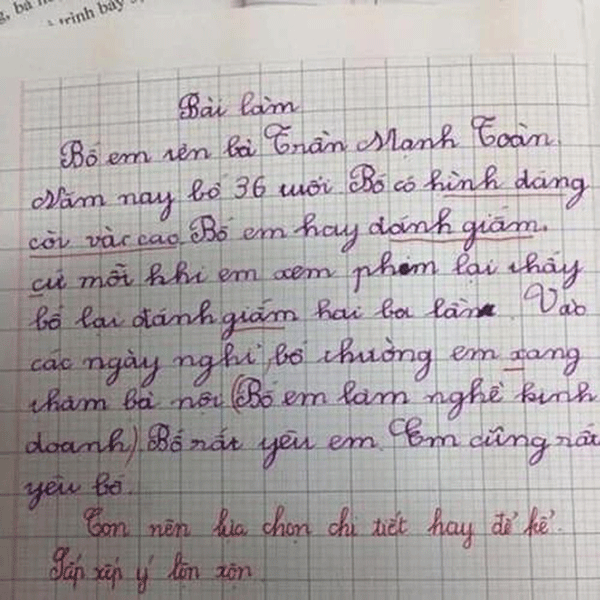 trình bày
Bài làm
Bố em tên là Trần Mạnh Toàn.
Năm nay bố 36 tuổi Bố có hình dáng
còi và cao. Bố em hay đánh giấm.
cứ mỗi khi em xem phim lại thấy
bố lại đánh giấm hai ba lần. Vào
các ngày nghỉ, bố thường em xang
thăm bà nội (Bố em làm nghề kinh
doanh) Bố rất yêu em. Em cũng rất
yêu bố.
Con nên lựa chọn chi tiết hay để kể.
Sắp xếp ý lộn xộn